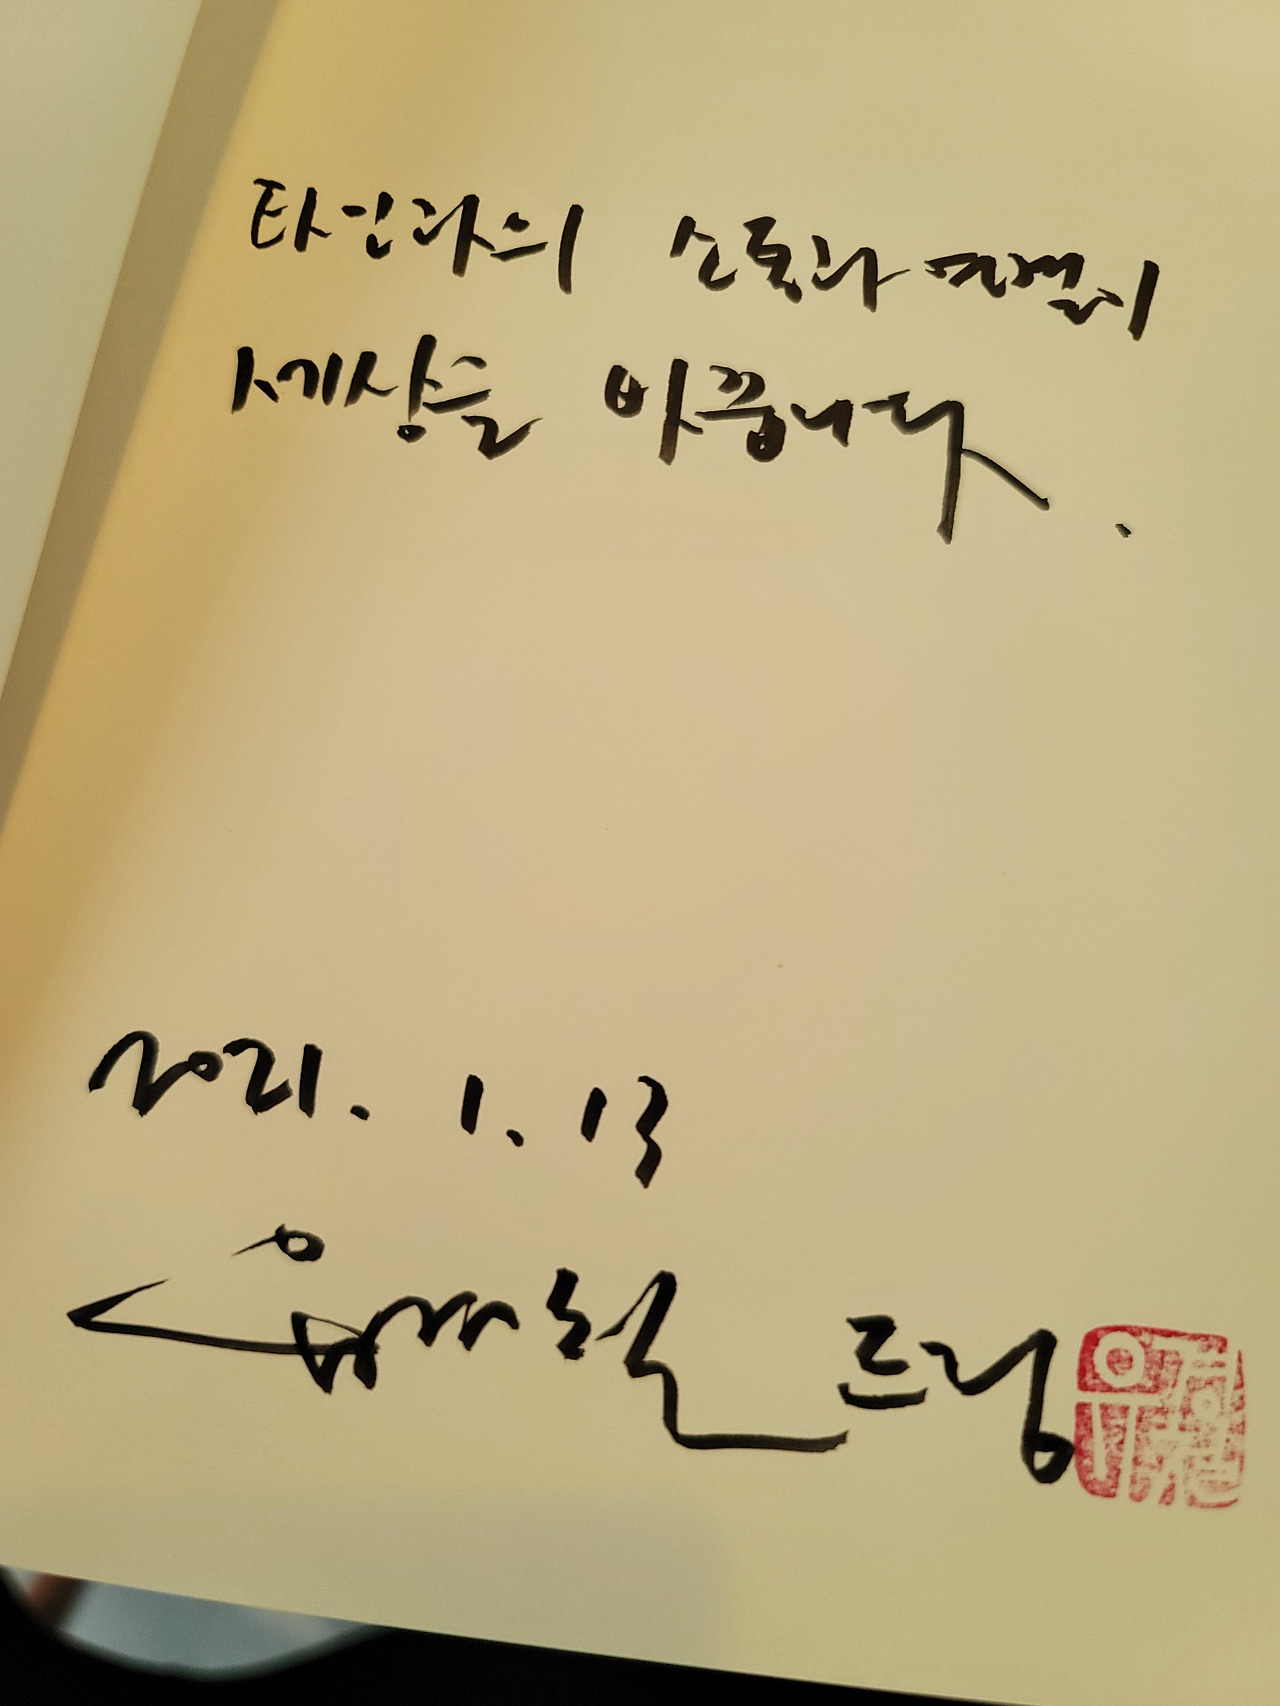 타인과의 소통과 연결이
세상을 바꿉니다.
2021. 1. 13
유재철 드림